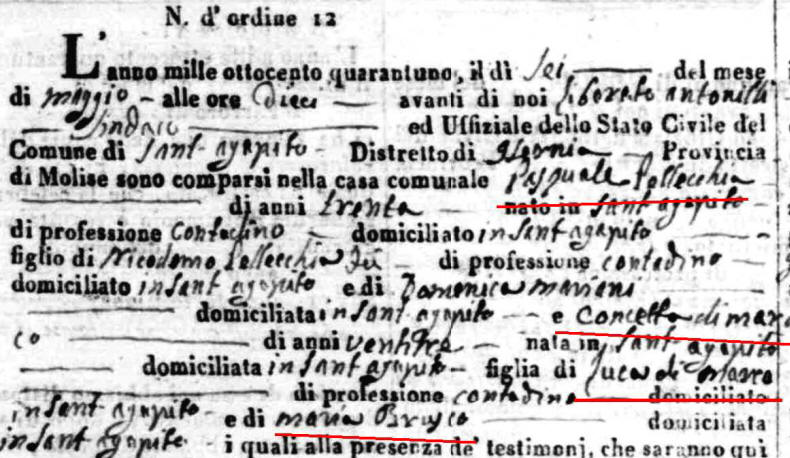 N. d'ordine 12
L'anno mille ottocento quarantuno, il dì sei del mese
di maggio - alle ore Dieci avanti di noi Liborato antonilli
Sindaco ed Uffiziale dello Stato Civile del
Comune di Sant agapito - Distretto di Isernia Provincia
di Molise sono comparsi nella casa comunale Pasquale Pellecchia
di anni trenta nato in Sant agapito
di professione Contadino domiciliato in Sant agapito
figlio di Nicodemo Pellecchia di professione contadino
domiciliato in Sant agapito e di Domenica mariani
domiciliata in Sant agapito e Concetta di mar
co di anni ventitre nata in Sant agapito
domiciliata in Sant agapito figlia di Luca di Marco
di professione contadino domiciliato
in Sant agapito e di maria Brusco domiciliata
in Sant agapito i quali alla presenza de' testimonj, che saranno qui